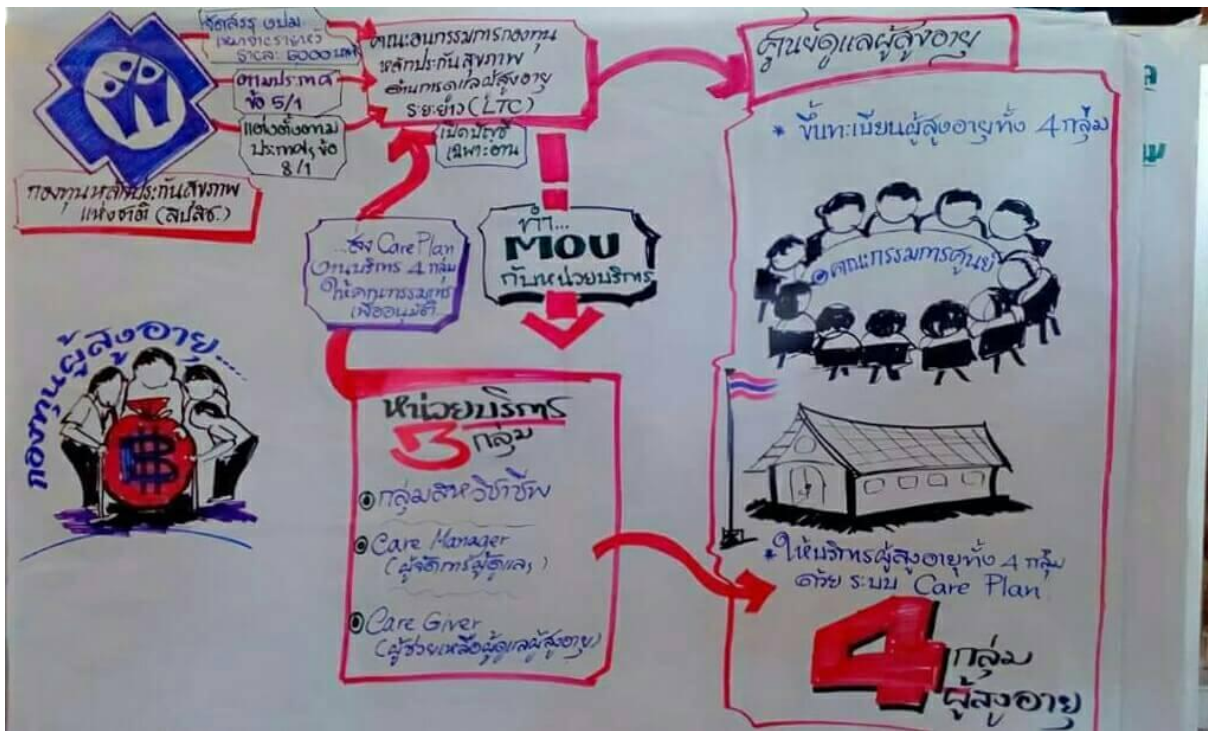 จัดสรร งปม.
เหมาจ่ายรายหัว
รายละ 6,000 บาท/ปี
ตามประกาศ
ข้อ 5/1
แต่งตั้งตาม
ประกาศฯ ข้อ
8/1
กองทุนหลักประกันสุขภาพ
แห่งชาติ (สปสช.)
คณะอนุกรรมการกองทุน
หลักประกันสุขภาพ
ด้านการดูแลผู้สูงอายุ
ระยะยาว (LTC)
เปิดบัญชี
เฉพาะด้าน
...ส่ง Care Plan
งานบริการ 4 กลุ่ม
ให้คณะกรรมการ
เพื่ออนุมัติ...
ทำ...
MOU
กับหน่วยบริการ
กองทุนผู้สูงอายุ....
หน่วยบริการ
3 กลุ่ม
กลุ่มสหวิชาชีพ
Care Manager
(ผู้จัดการผู้ดูแลฯ)
Care Giver
(ผู้ช่วยเหลือผู้ดูแลผู้สูงอายุ)
ศูนย์ดูแลผู้สูงอายุ
* ขึ้นทะเบียนผู้สูงอายุทั้ง 4 กลุ่ม
คณะกรรมการศูนย์
* ให้บริการผู้สูงอายุทั้ง 4 กลุ่ม
ด้วย ระบบ Care Plan
4 กลุ่ม
ผู้สูงอายุ